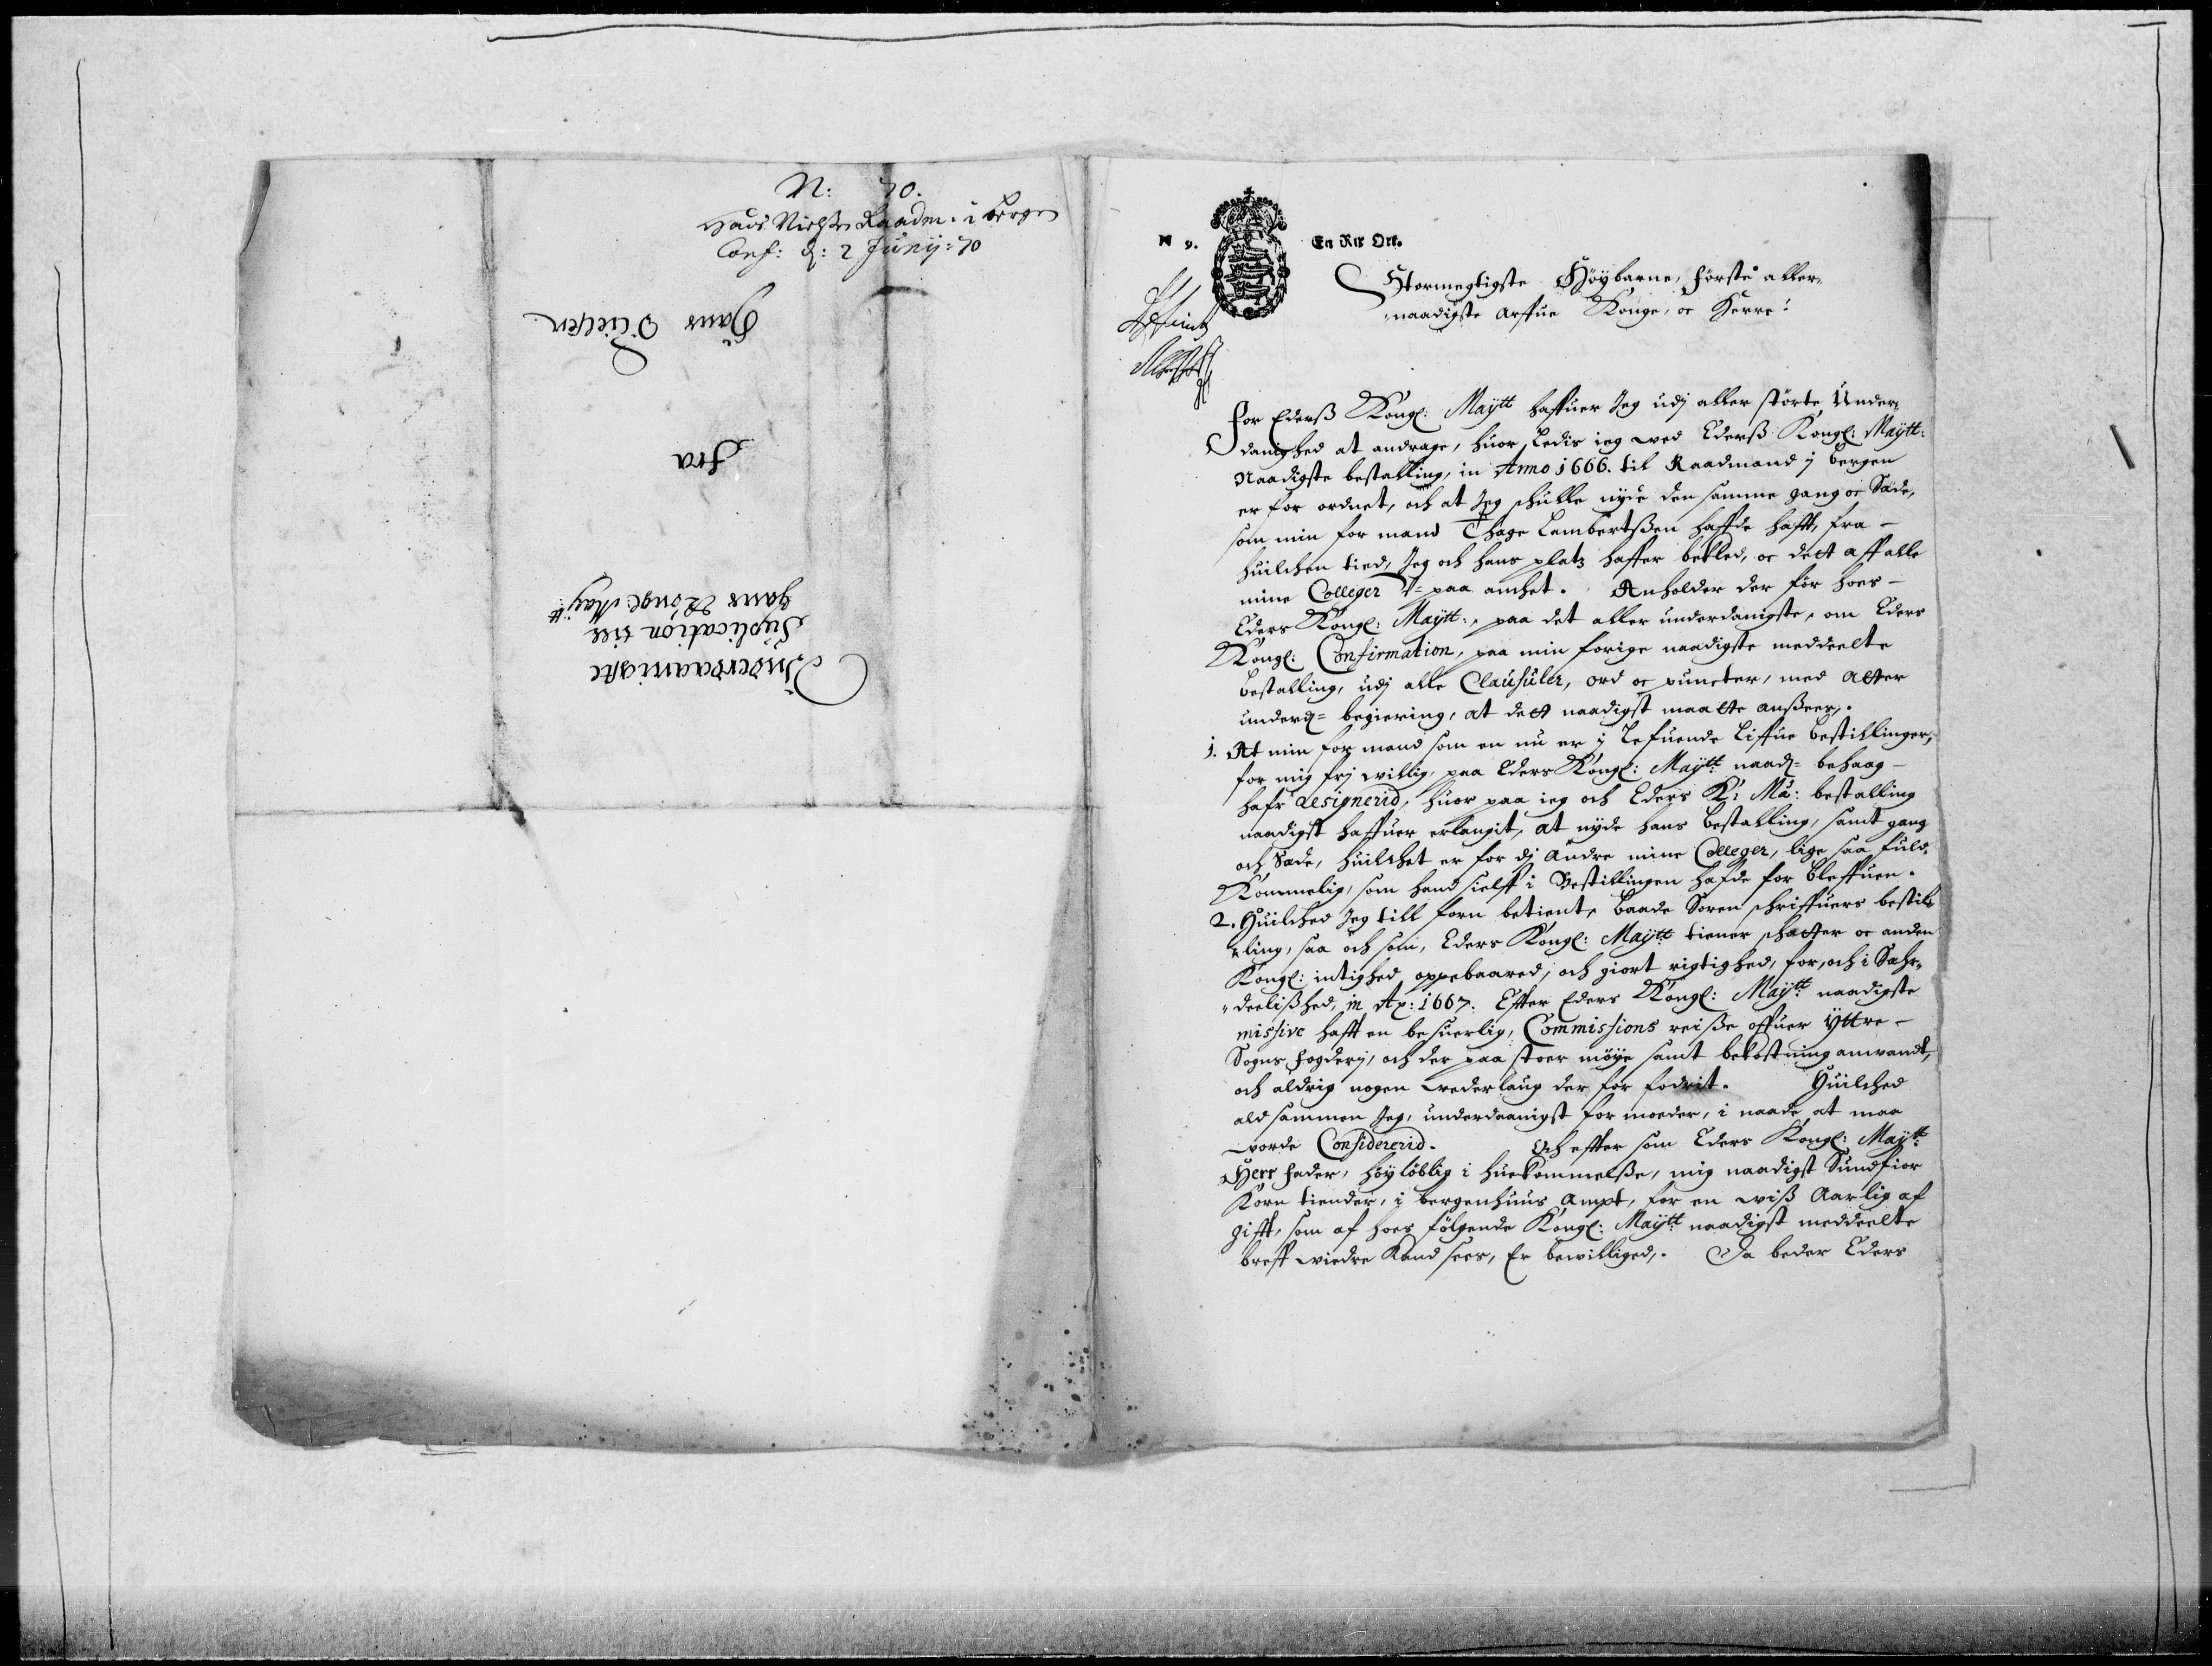 N: 70.
Hans Nielsen Raadm: i Bergen
Conf: d: 2 Junij: 70
Underdaanigste
Suplication till
Hans Kongl: Maytt
fra
Hans Nielsen
N 9.
En Rix Ort.
Stormegtigste Høybarne, første aller,
naadigste arffue Konge, oc Herre!
For Ederß Kongl: Maytt haffuer Jeg udj aller størte Under,
danighed at andrage, huor ledis ieg ved Ederß Kongl: Maytt:
Naadigste bestalling, in Anno 1666. til Raadmand j bergen
er for ordnet, och at Jeg schulle nyde den samme gang oc Sæde,
som min for mand Thage Lambertßen haffde hafft, fra -
huilchen tied, Jeg och hans platz haffer bekled, oc dett aff alle
mine Colleger paa anchet. Anholder der før hoes -
Eders Kongl: Maytt:, paa det aller underdanigste, om Eders
Kongl: Confirmation, paa min forige naadigste meddeelte
bestalling, udj alle Clausuler, ord oc puncter, med atter
underd= begiering, at dett naadigst maatte anßeer,.
1. At min for mand som en nu er j lefuende liffue bestillinger,
for mig frj willig, paa Eders Kongl: Maytt: naad= behaag -
hafr Resignerid, huor paa ieg och Eders K: Ma: bestalling
naadigst haffuer erlangit, at nyde hans bestalling, samt gang
och Sæde, huilchet er for dj andre mine Colleger, lige saa fuld,
Kommelig, som hand sielff i Bestillingen hafde for bleffuen.
2. Huilched Jeg till forn betient, baade Soren schriffuers bestil
ling, saa och som, Eders Kongl: Maytt tiener schatter oc anden
Kongl: intighed oppebaared, och giort rigtighed, for, och i Sæhr,
deelißhed, in Ao: 1667. Effter Eders Kongl: Maytt: naadigste
missive hafft en besuerlig, Commissions reiße offuer Yttre -
Sogns fogderj, och der paa stoer møye samt bekostning anvandt,
och aldrig nogen wederlaug der for fodrit. Huilched
ald sammen Jeg, underdaanigst for moeder, i naade at maa
vorde Considererid. Och effter som Eders Kongl: Maytt:
Herr fader, høyløblig i huekommelße, mig naadigst Sundfior
Korn tiender, i bergenhuus Ampt, for en wiß Aarlig af
gifft, som af hoes følgende Kongl: Maytt: naadigst meddeelte
breff wiedre Kand sees, Er bewilliged,. Da beder Eders